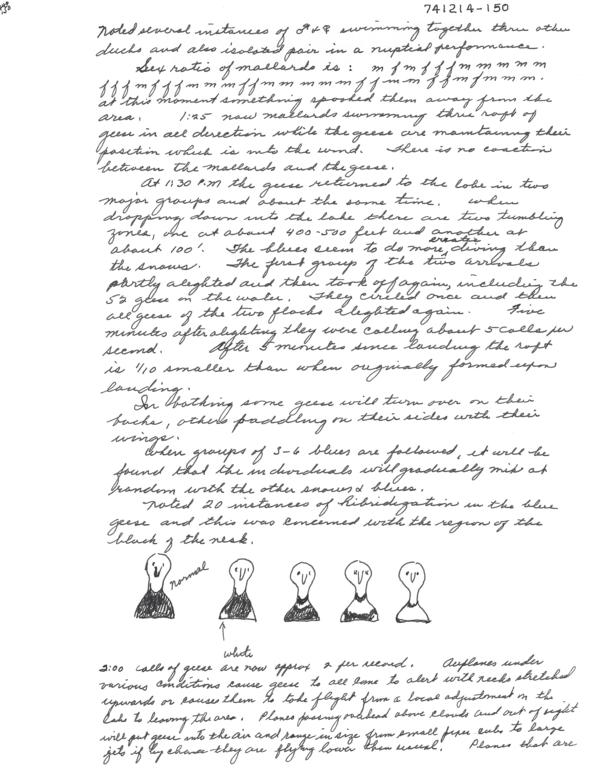 741214-150
Noted several instances of ♂ & ♀ swimming together thru other
ducks and also isolated pair in a nuptial performance.
Sex ratio of mallards is: m f m f f f m m m m m
f f f m f f f m m m f f m m m m m f f m m f f m f m m m.
at this moment something spooked them away from the
area. 1:25 now mallards swimming thru raft of
geese in all direction while the geese are maintaining their
position which is into the wind. There is no
between the mallards and the geese.
At 1:30 P.M the geese returned to the lake in two
major groups and about the same time. when
dropping down into the lake there are two tumbling
zones, one at about 400-500 feet and another at
about 100'. The blues seem to do more erratic diving than
the snows. The first group of the two arrivals
partly aleghted and then took off again, including the
52 geese on the water. They circled once and then
all geese of the two flocks aleghted again. Five
minutes after aleghting they were calling about 5 calls per
second. After 5 minutes since landing the raft
is 1/10 smaller than when originally formed upon
landing.
In bathing some geese will turn over on their
backs, others paddling on their sides with their
wings.
When groups of 3-6 blues are followed, it will be
found that the individuals will gradually mix at
random with the other snows & blues.
Noted 20 instances of hibridization in the blue
geese and this was concerned with the region of the
black of the neck.
normal
white
2:00 calls of geese are now approx 2 per second. Airplanes under
various conditions cause geese to all come to alert with necks stretched
upwards or causes them to take flight from a local adjustment on the
lake to leaving the area. Planes passing overhead above clouds and out of sight
will put geese into the air and range in size from small piper cubs to large
jets if by chance they are flying lower than usual. Planes that are